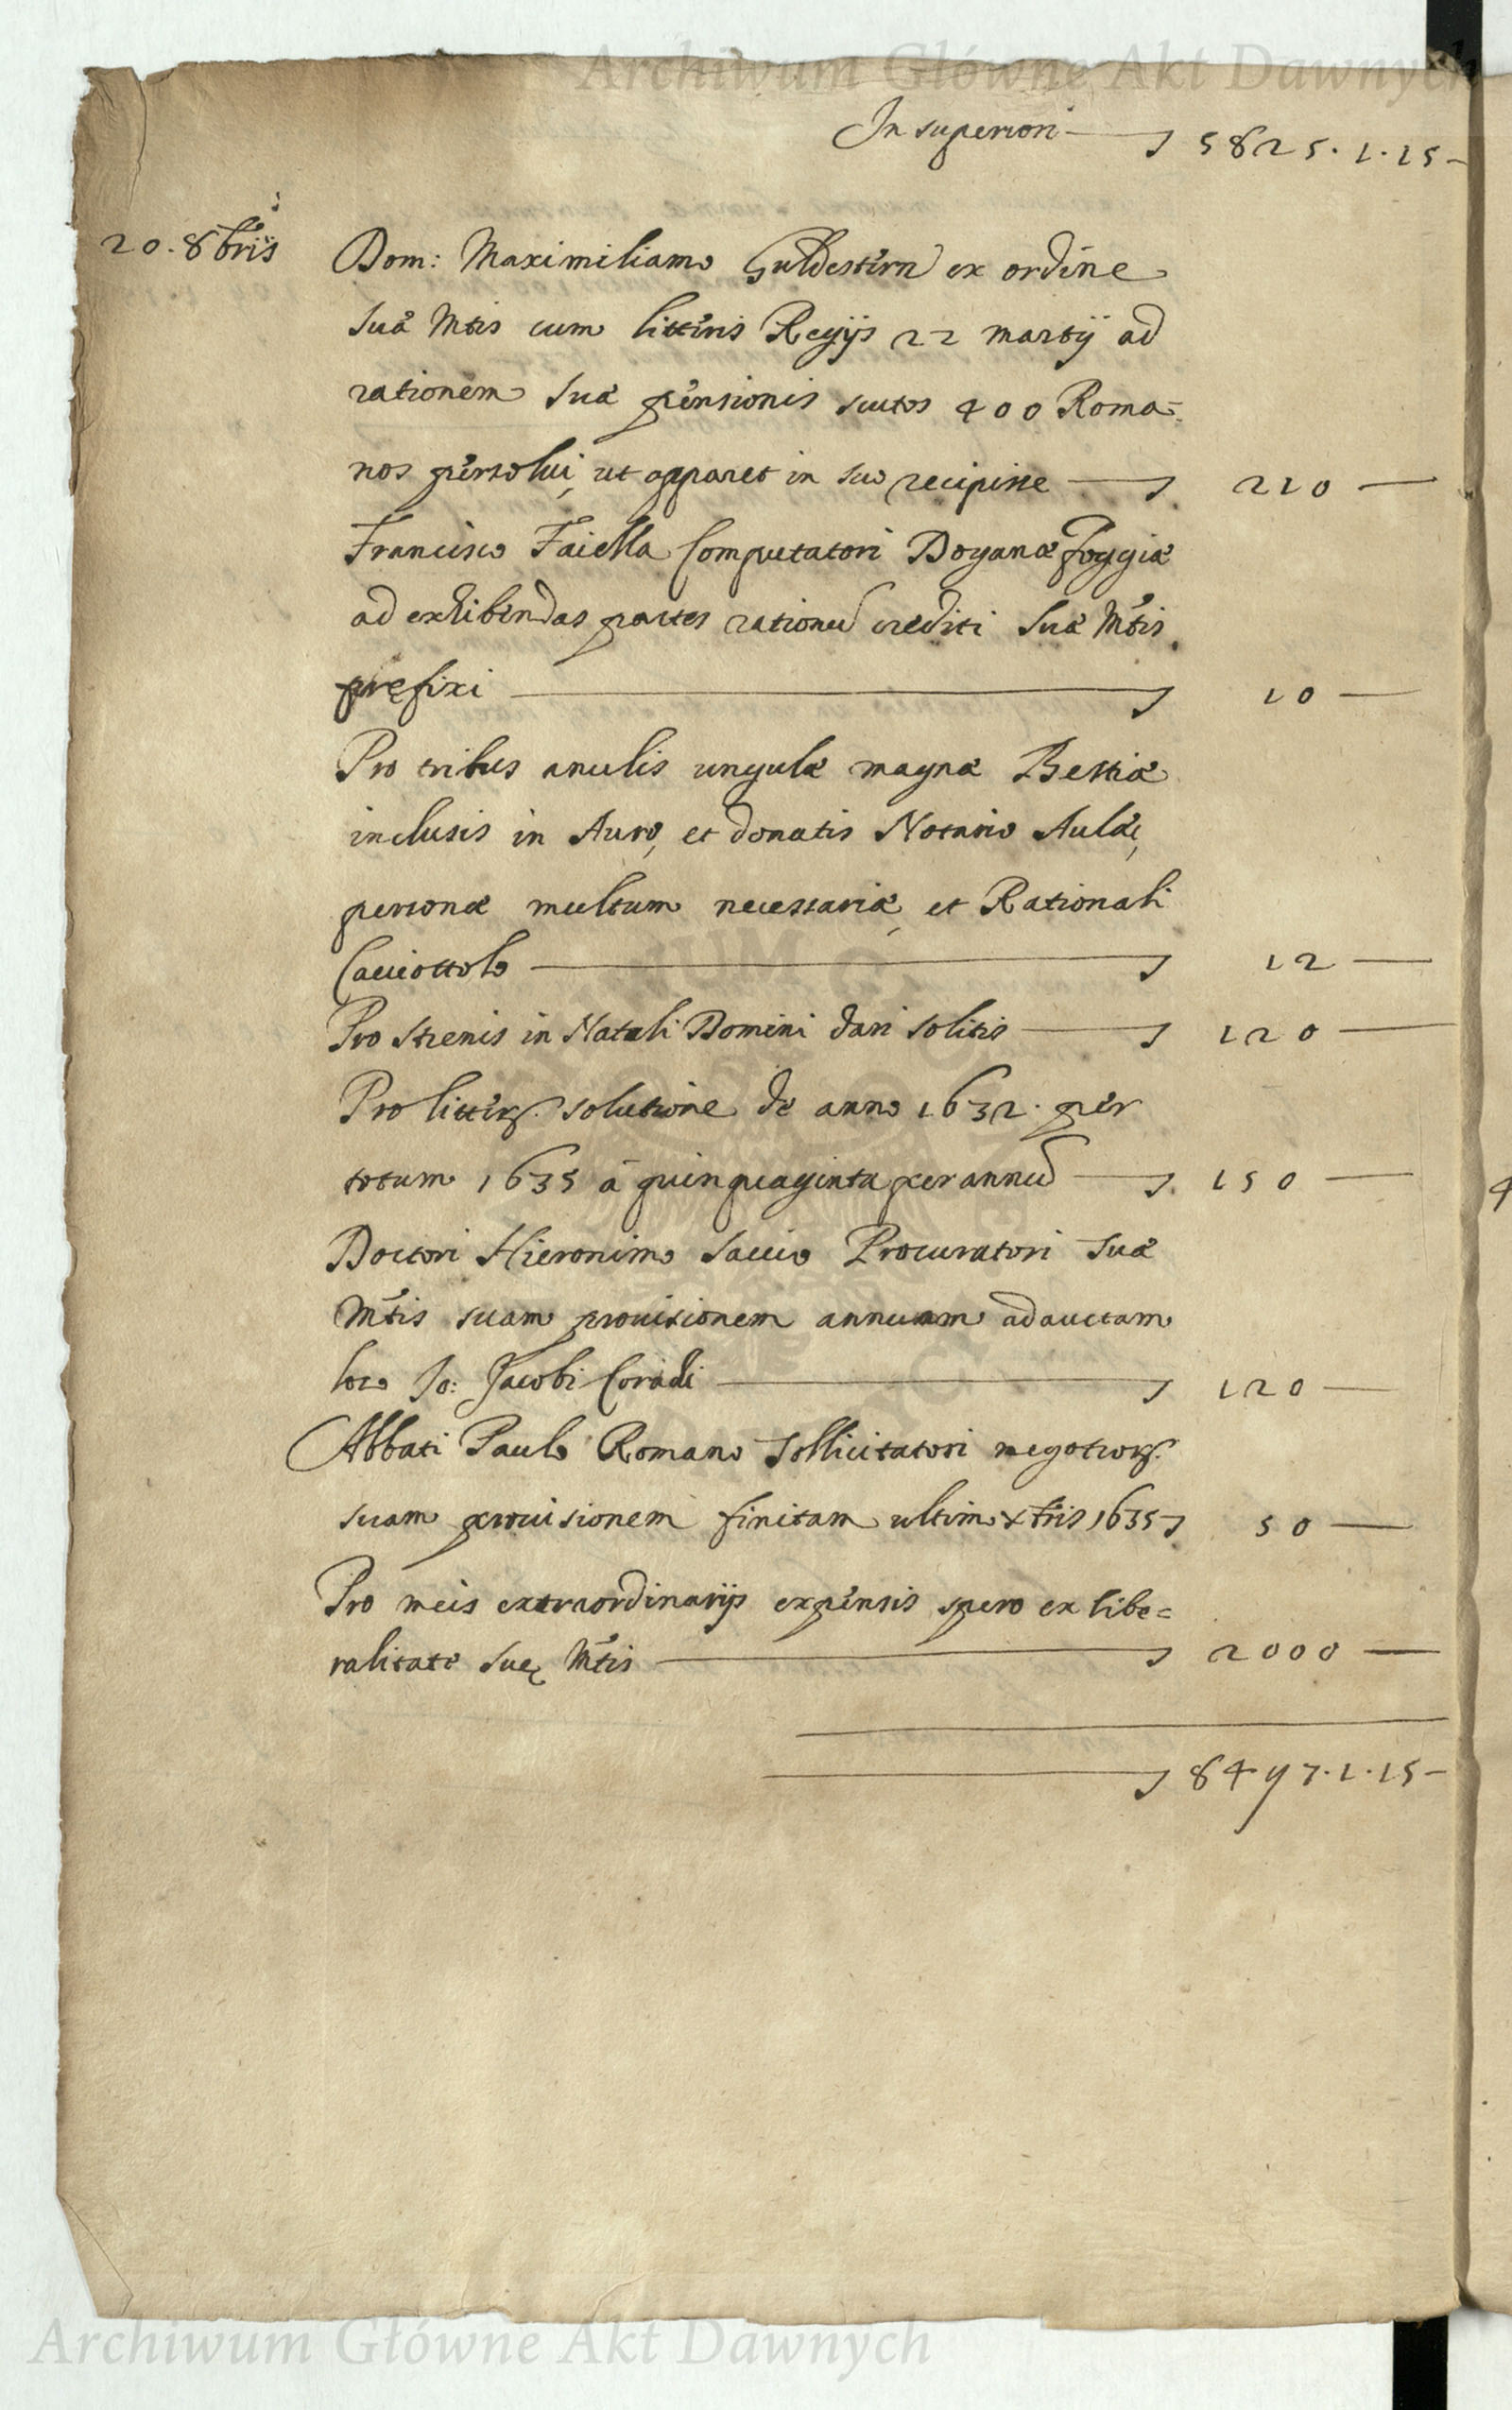 Archiwum Główne Akt Dawnych
In superiori 5825.1.15
20. 8bris
Dom: Maximiliano Guldestern ex ordine
suæ Mtis cum litteris Regijs 22 martij ad
rationem suæ pensionis scutos 400 Roma=
nos persolui, ut apparet in suo recipisse 210
Francisco Faiella Computatori Doganæ foggiæ
ad exhibendas partes rationū crediti suæ Mtis
pręfixi 10
Pro tribus anulis ungulæ magnæ Bestiæ
inclusis in Auro, et donatis Notario Aulæ,
personæ multum necessariæ, et Rationali
Cacciottolo 12
Pro strenis in Natali Domini dari solitis 120
Pro litterꝝ solutione de anno 1632. per
totum 1635 à quinquaginta per annū 150
Doctori Hieronimo Saccio Procuratori suæ
Mtis suam prouisionem annuam adauctam
loco Jo: Jacobi Coradi 120
Abbati Paulo Romano sollicitatori negotiorꝝ
suam prouisionem finitam ultimo xbris 1635 50
Pro meis extraordinarijs expensis spero ex libe=
ralitate suę Mtis 2000
8497.1.15
Archiwum Główne Akt Dawnych